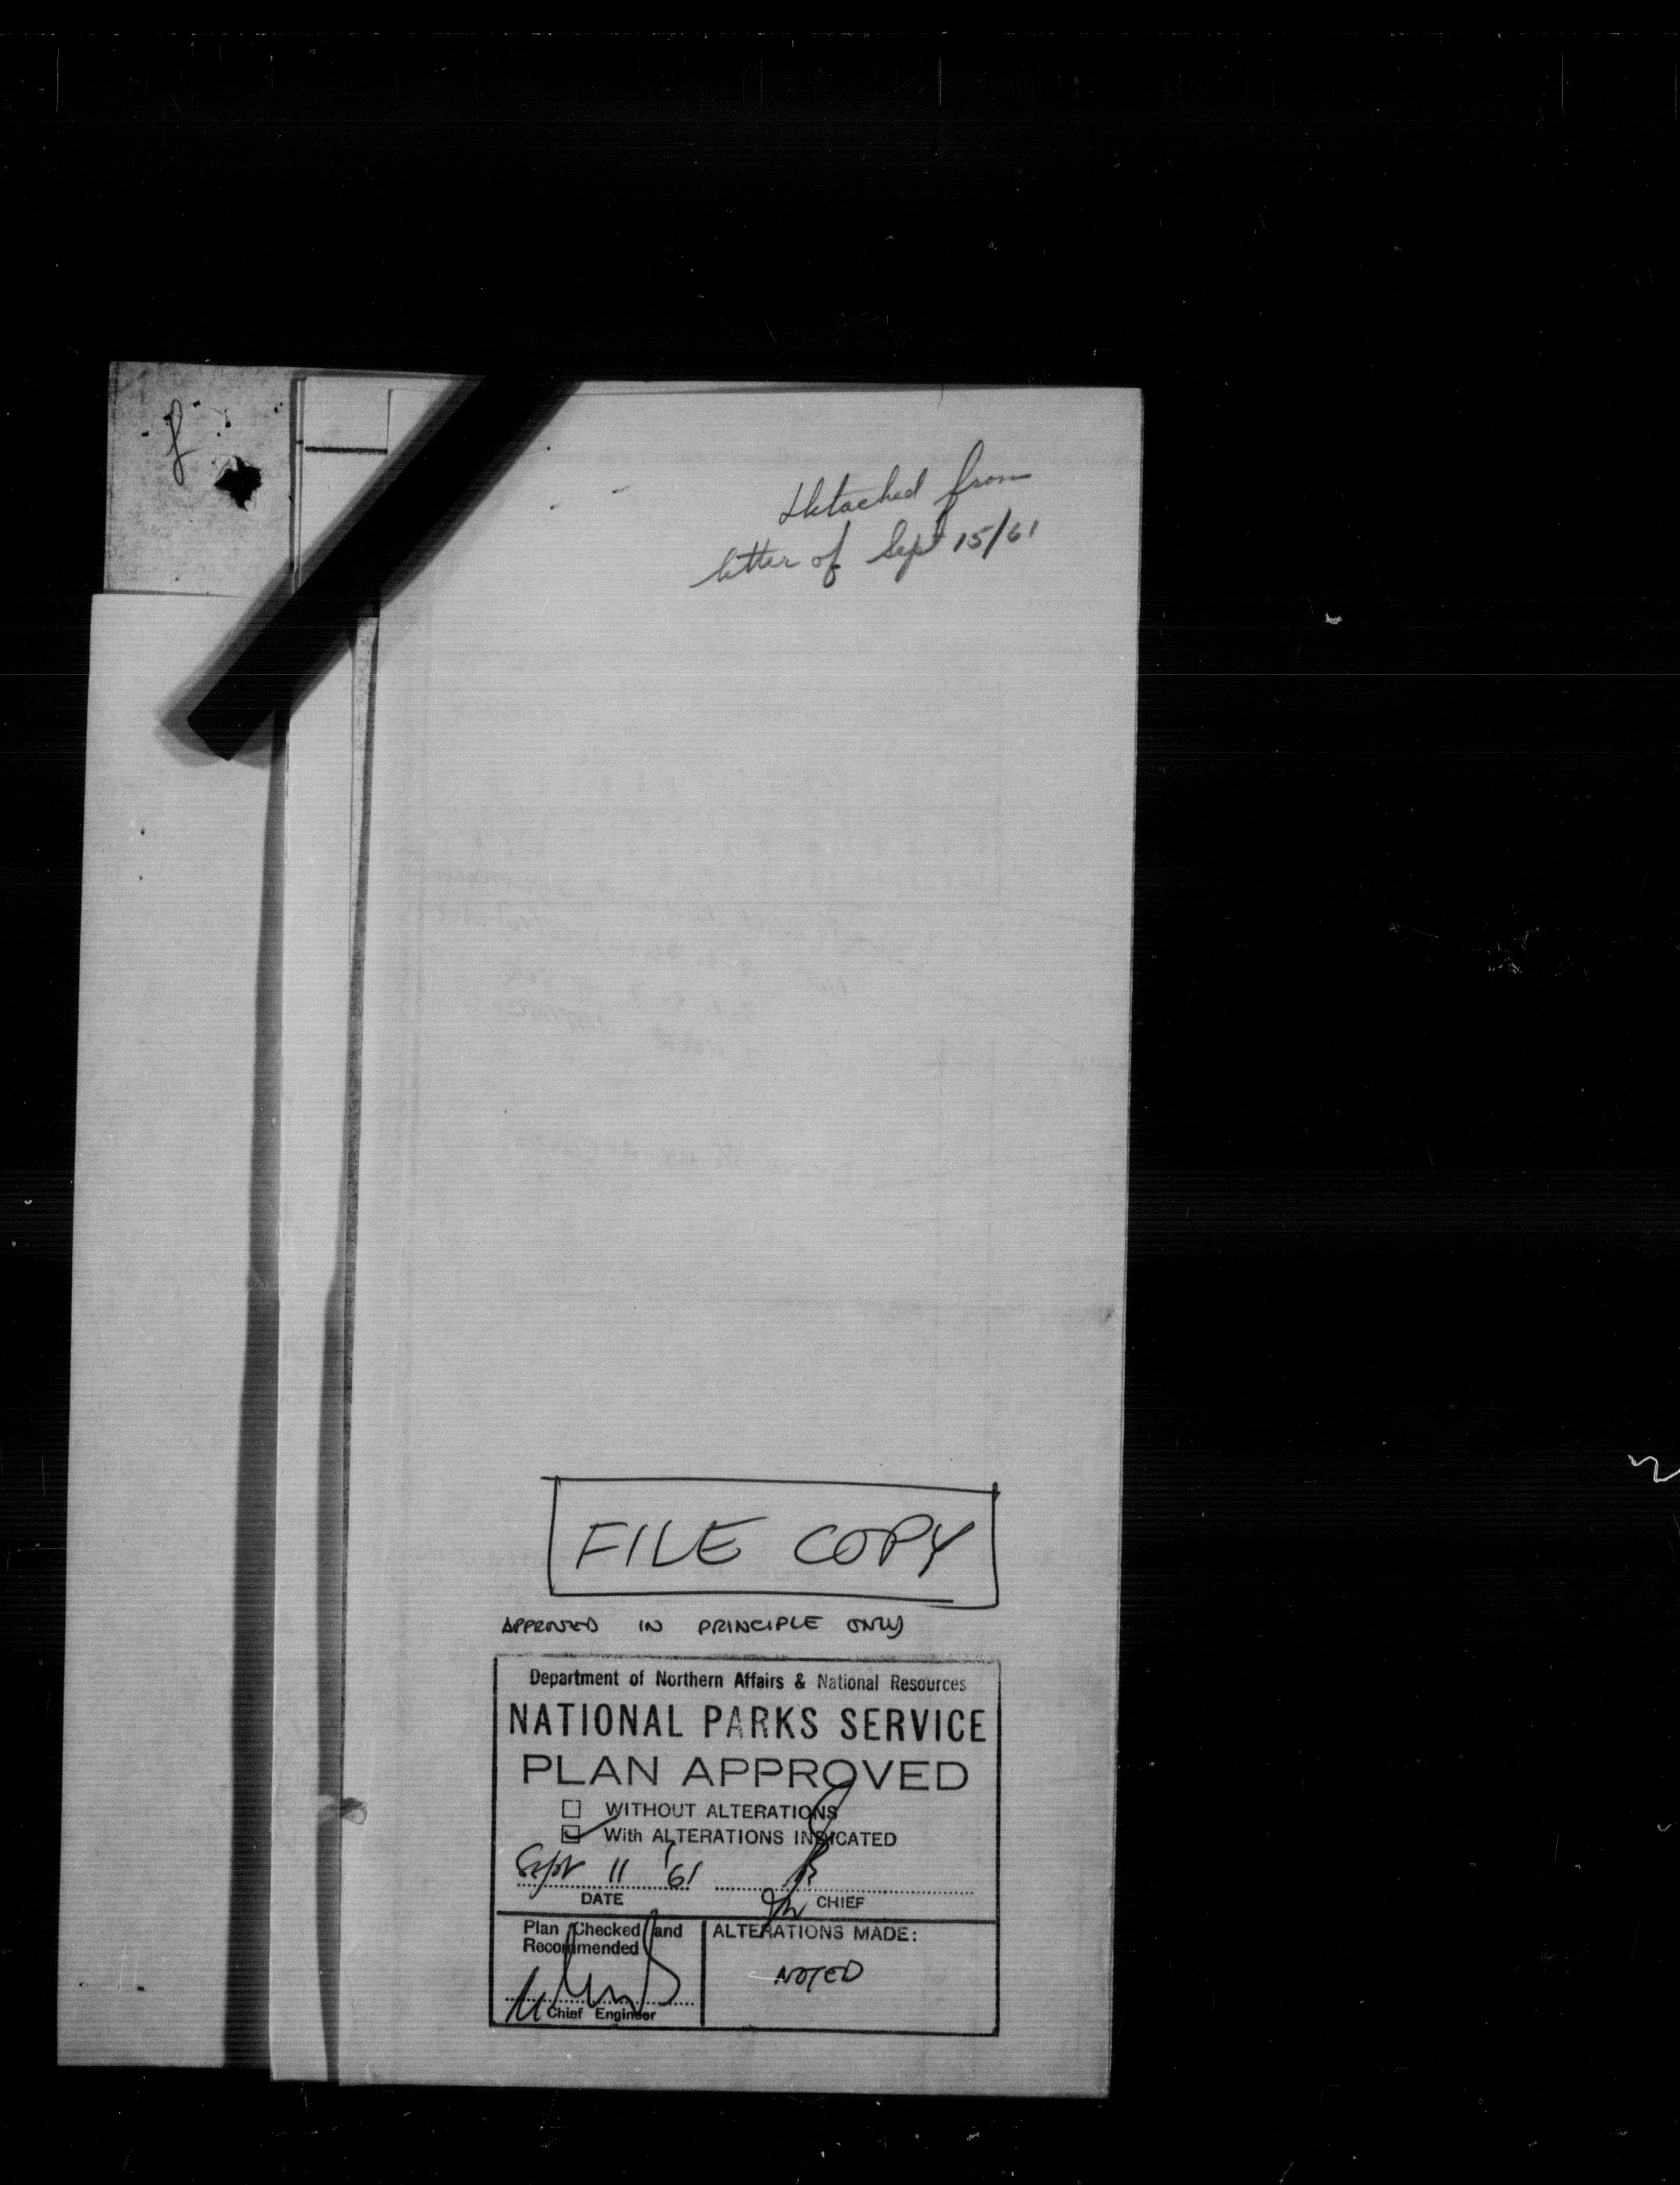 f
Detached from
letter of Sept 15/61
FILE COPY
APPROVED IN PRINCIPLE ONLY
Department of Northern Affairs & National Resources
NATIONAL PARKS SERVICE
PLAN APPROVED
☐ WITHOUT ALTERATIONS
☑ With ALTERATIONS INDICATED
Sept 11 '61
DATE
CHIEF
Plan Checked and
Recommended
Chief Engineer
ALTERATIONS MADE:
NOTED